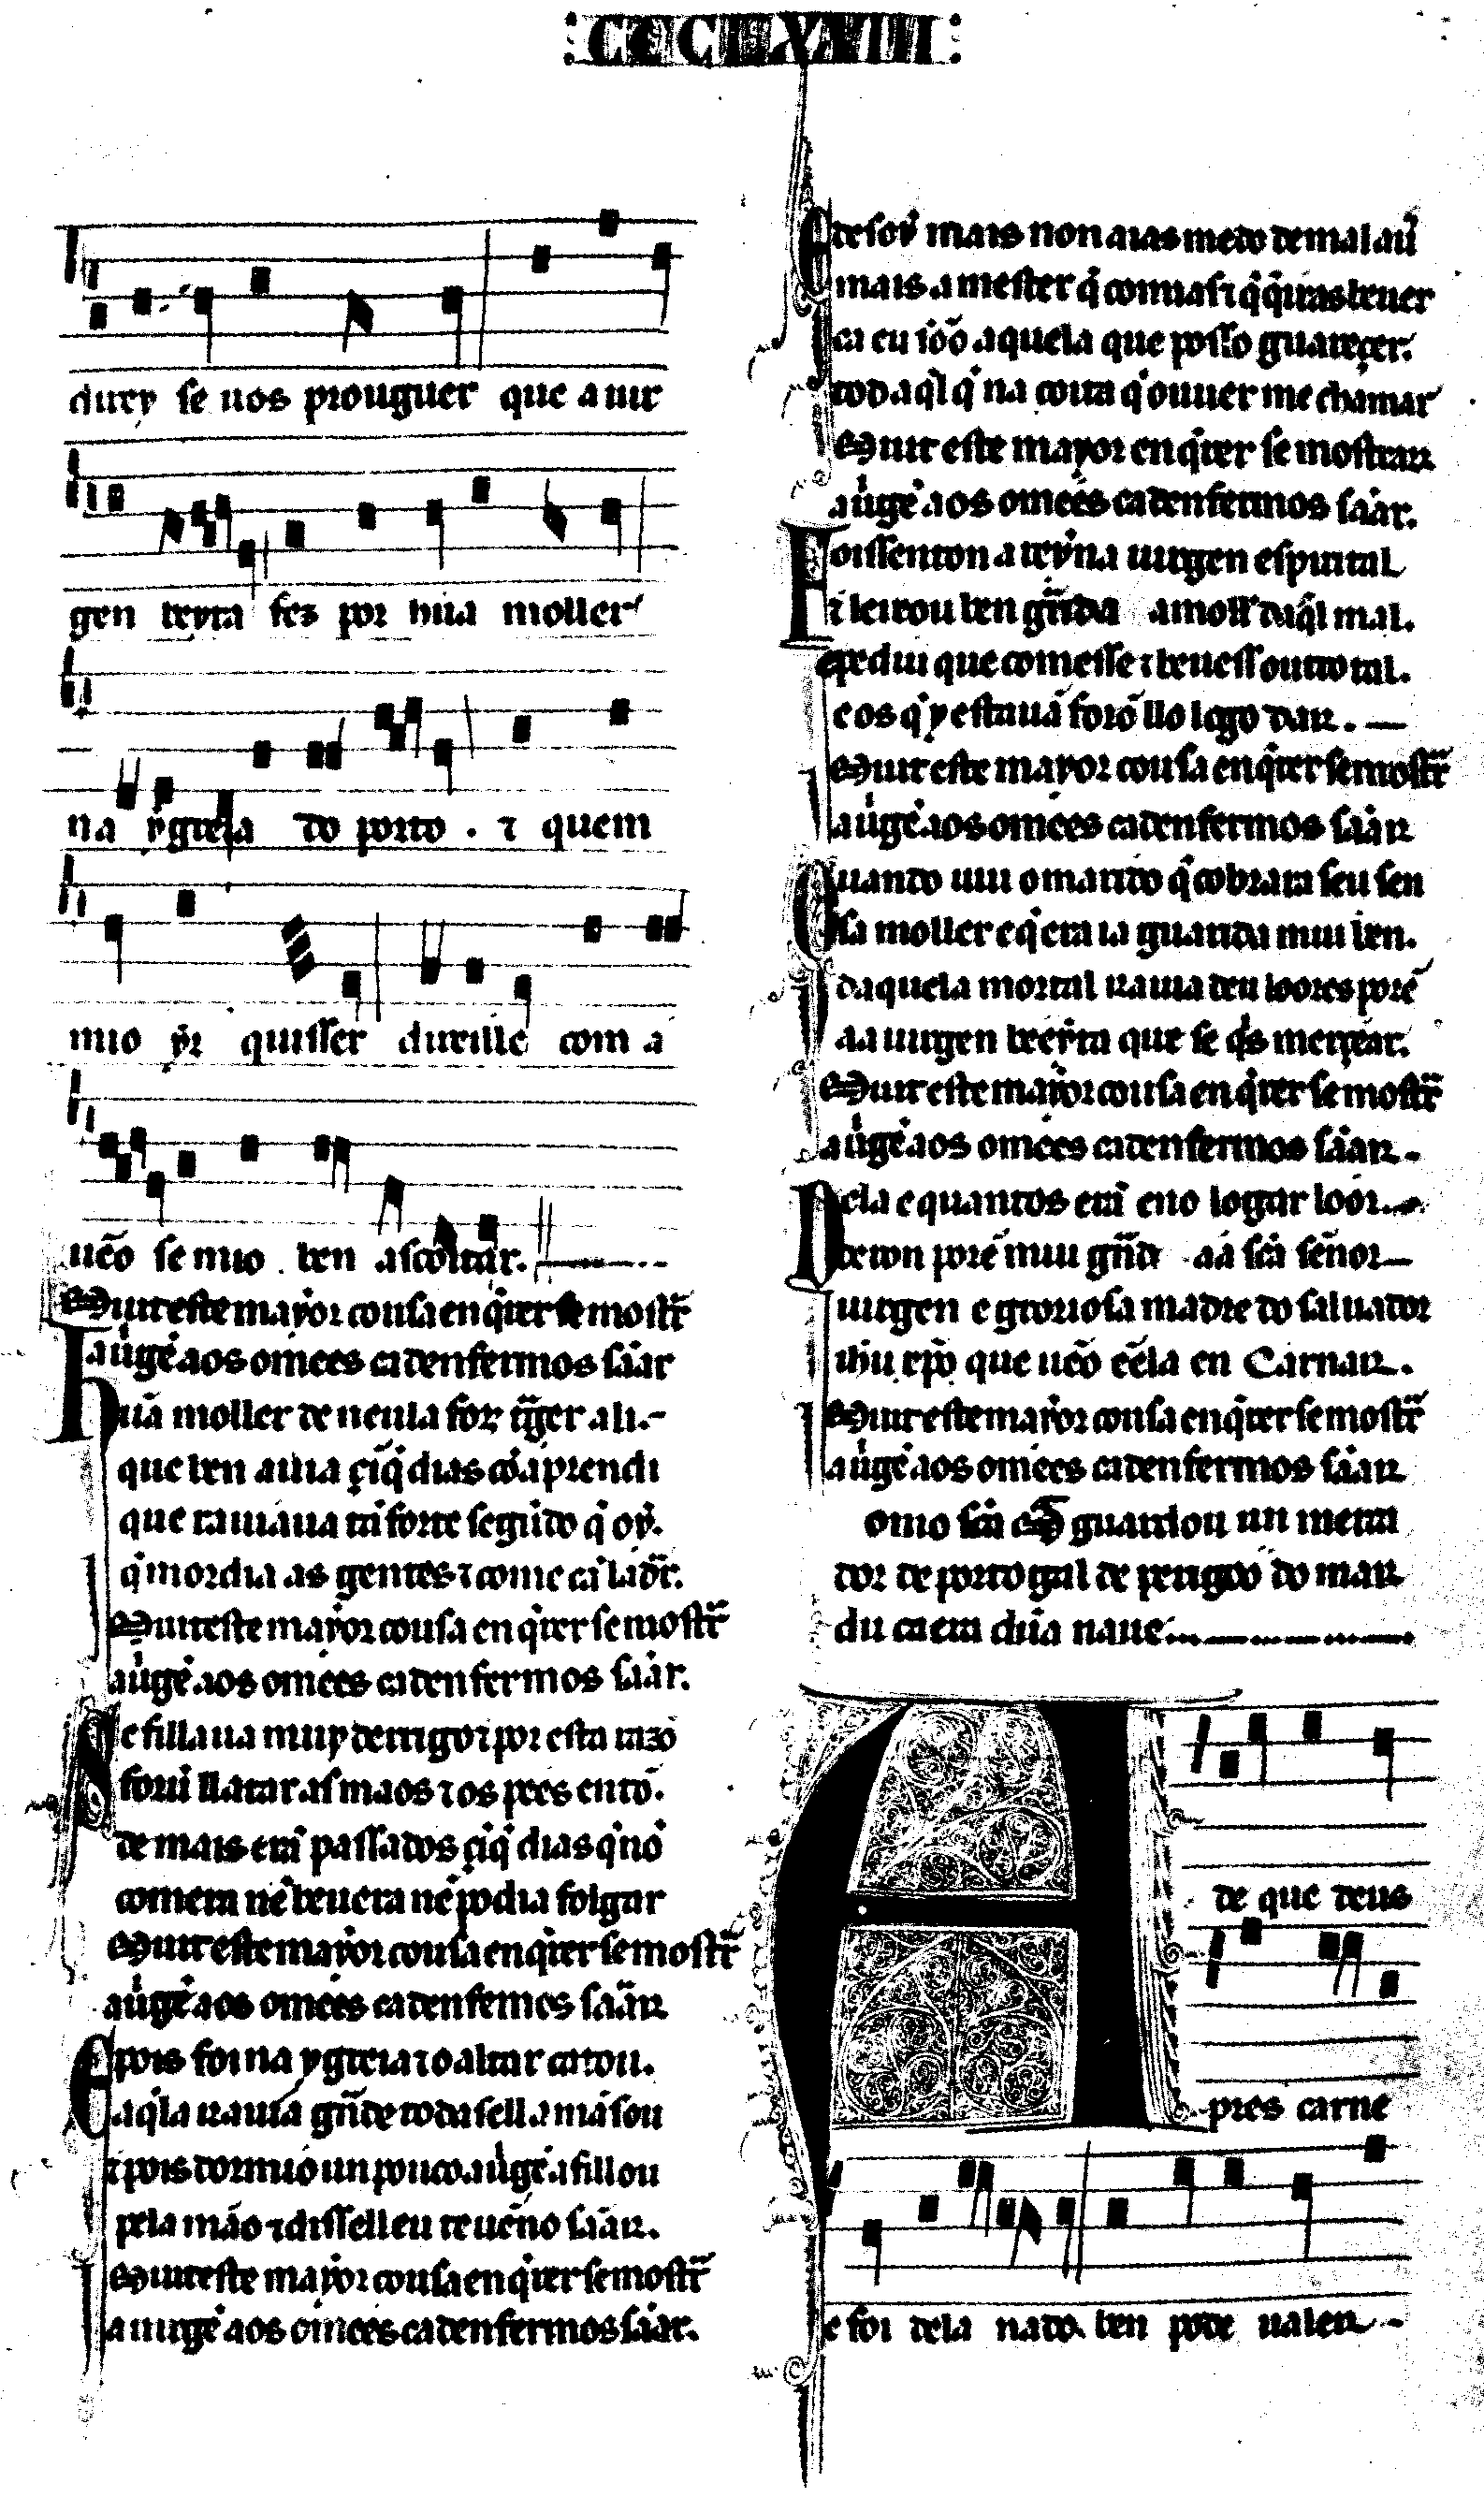 CCCLXXIII
direy se uos prouguer que a uir
gen beyta fez por hũa moller
na ygreia do porto . ⁊ quem
mio yr quisser direille com a
uẽo se mio ben ascoitar.
Muit este mayor cousa en q̇rer se mostr̃
a uirgẽ aos omees ca d enfermos sãar
Hũa moller de neula foi tr̃ger ali.
que ben auia çinq̇ dias cõ aprendi
que rauiaua tã forte segũdo q̇ oý.
q̇ mordia as gentes ⁊ come cã ladr̃.
Muit este mayor cousa en q̇rer se mostr̃
a uirgẽ aos omees ca d enfermos sãar.
E fillaua muy derrigo ⁊ por esta razõ
forõ ll atar as maos ⁊ os pees entõ.
de mais erã passados çinq̇ dias q̇ nõ
comera nẽ beuera nẽ podia folgar
Muit este mayor cousa en q̇rer se mostr̃
a uirgẽ aos omees ca d enfemos sãar
E pois foi na ygreia ⁊ o altar catou.
a aq̇la rauia gñde toda sell amãsou
⁊ pois dormio un pouco a uirgẽ a fillou
pela mão ⁊ dissell eu te uẽno sãar.
Muit este mayor cousa en q̇rer se mostr̃
a uirgẽ aos omees ca d enfermos sãar.
E desoý mais non aias medo de mal auer
mais a mester q̇ comias ⁊ q̇ q̇iras beuer
ca eu sõo aquela que posso guareçer.
tod aq̇l q̇ na coita q̇ ouuer me chamar
Muit este mayor en q̇rer se mostrar
a uirgẽ aos omees ca d enfermos sãar.
Foissenton a reyna uirgen espirital
⁊ leixou ben gñida a moll̃ daq̇l mal.
e pediu que comesse ⁊ beuess outro tal.
e os q̇ y estauã forõ llo logo dar.
Muit este mayor cousa en q̇rer se mostr̃
a uirgẽ aos omees ca d enfermos sãar
Quando uiu o marido q̇ cobrara seu sen
sa moller e q̇ era ia guarida mui ben.
daquela mortal rauia deu loores porẽ
aa uirgen beeyta que se q̇s merçear.
Muit este mayor cousa en q̇rer se mostr̃
a uirgẽ aos omees ca d enfermos sãar.
Dela e quantos erã eno logar loor.
deron porẽ mui gñd aa sc̃a señor
uirgen e groriosa madre do saluador
ihũ xp̃o que uẽo eẽla en Carnar.
Muit este mayor cousa en q̇rer se mostr̃
a uirgẽ aos omees ca d enfermos sãar
omo sc̃a M̃ guardou un merca
dor de portogal de perigoo do mar
du caera dũa naue
A de que deus
pres carne
e foi dela nado. ben pode ualer